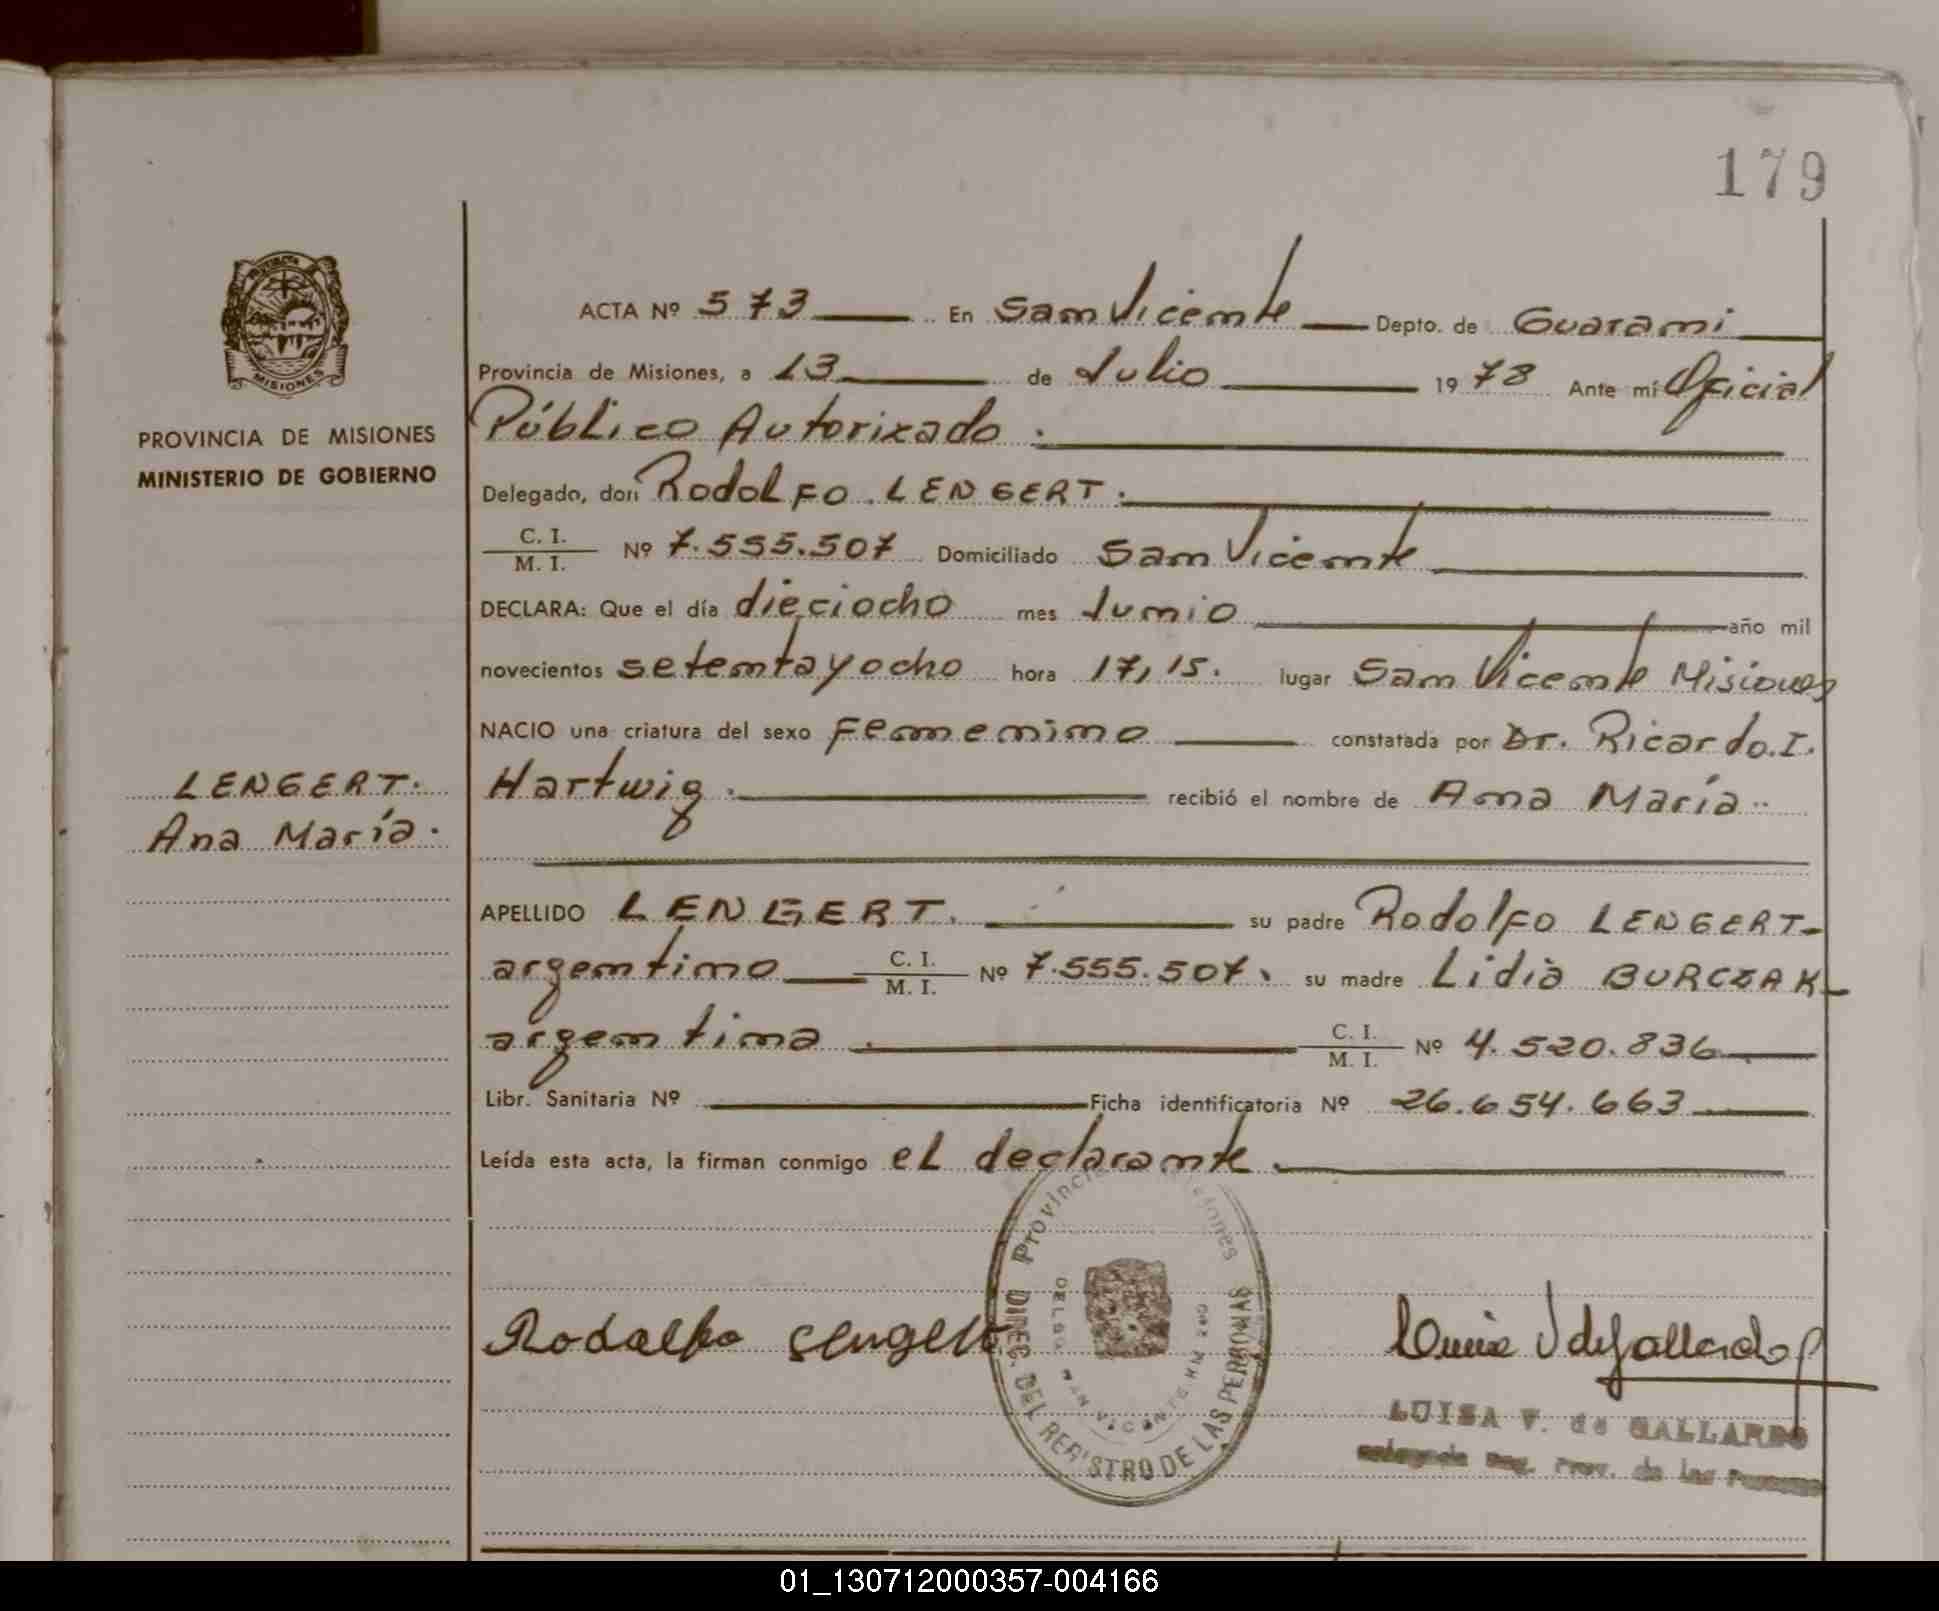 179
ACTA Nº 573 En San Vicente Depto. de Guarani
Provincia de Misiones, a 13 de Julio 1978 Ante mí Oficial
Público Autorizado.
PROVINCIA DE MISIONES
MINISTERIO DE GOBIERNO
Delegado, don Rodolfo LENGERT.
C. I.
M. I. Nº 7.555.507 Domiciliado San Vicente
DECLARA: Que el día dieciocho mes Junio año mil
novecientos setentayocho hora 17,15. lugar San Vicente Misiones
NACIO una criatura del sexo femenino constatada por Dr. Ricardo.I.
Hartwig. recibió el nombre de Ana María..
LENGERT.
Ana María.
APELLIDO LENGERT. su padre Rodolfo LENGERT-
argentino C. I. M. I. Nº 7.555.507. su madre Lidia BURCZAK-
argentina. C. I. M. I. Nº 4.520.836
Libr. Sanitaria Nº Ficha identificatoria Nº 26.654.663
Leída esta acta, la firman conmigo el declarante.
Provincia Misiones
DIREC. DEL REGISTRO DE LAS PERSONAS
SAN VICENTE
MISIONES
Rodolfo Lengert
Luisa V de Gallardo
LUISA V. de GALLARDO
Reg. Prov. de las Personas
01_130712000357-004166